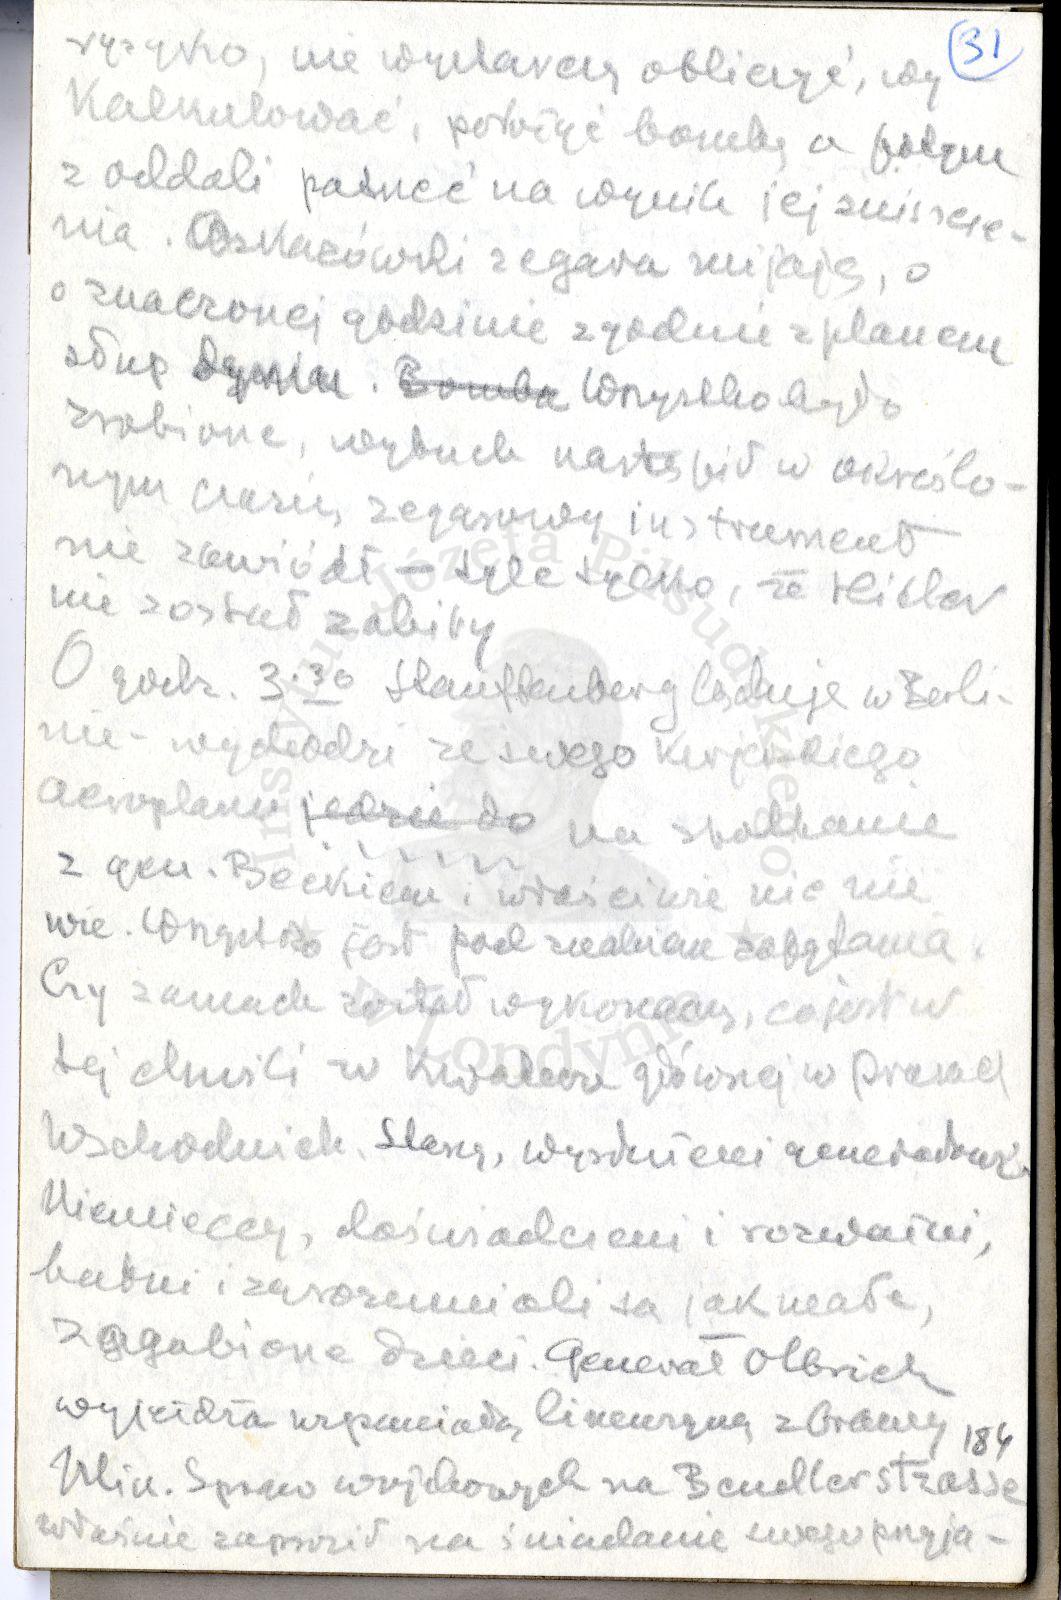 31
ryzyko, nie wystarczy obliczyć, wy
kalkulować, położyć bombę a potym
z oddali patrzeć na wynik jej zniszcze-
nia. Wskazówki zegara mijają, o
oznaczonej godzinie zgodnie z planem
słup dymu. Bomba Wszystko było
zrobione, wybuch nastąpił w określo-
nym czasie, zegarowy instrument
nie zawiódł – tyle tylko, że Hitler
nie został zabity
O godz. 3.30 Stauffenberg ląduje w Berli-
nie – wychodzi ze swego kurjerskiego
aeroplanu jedzie do na spotkanie
z gen. Beckiem i właściwie nic nie
wie. Wszystko jest pod znakiem zapytania.
Czy zamach został wykonany, co jest w
tej chwili w kwaterze głównej w Prusach
Wschodnich. Starzy, wyszkoleni generałowie
Niemieccy, doświadczeni i rozważni,
butni i zarozumiali są jak małe,
zagubione dzieci. Generał Olbrich
wyjeżdża wspaniałą limuzyną z bramy 184
Min. Spraw wojskowych na Bendlerstrasse
właśnie zaprosił na śniadanie swego przyja-
Instytut Józefa Piłsudskiego
w Londynie